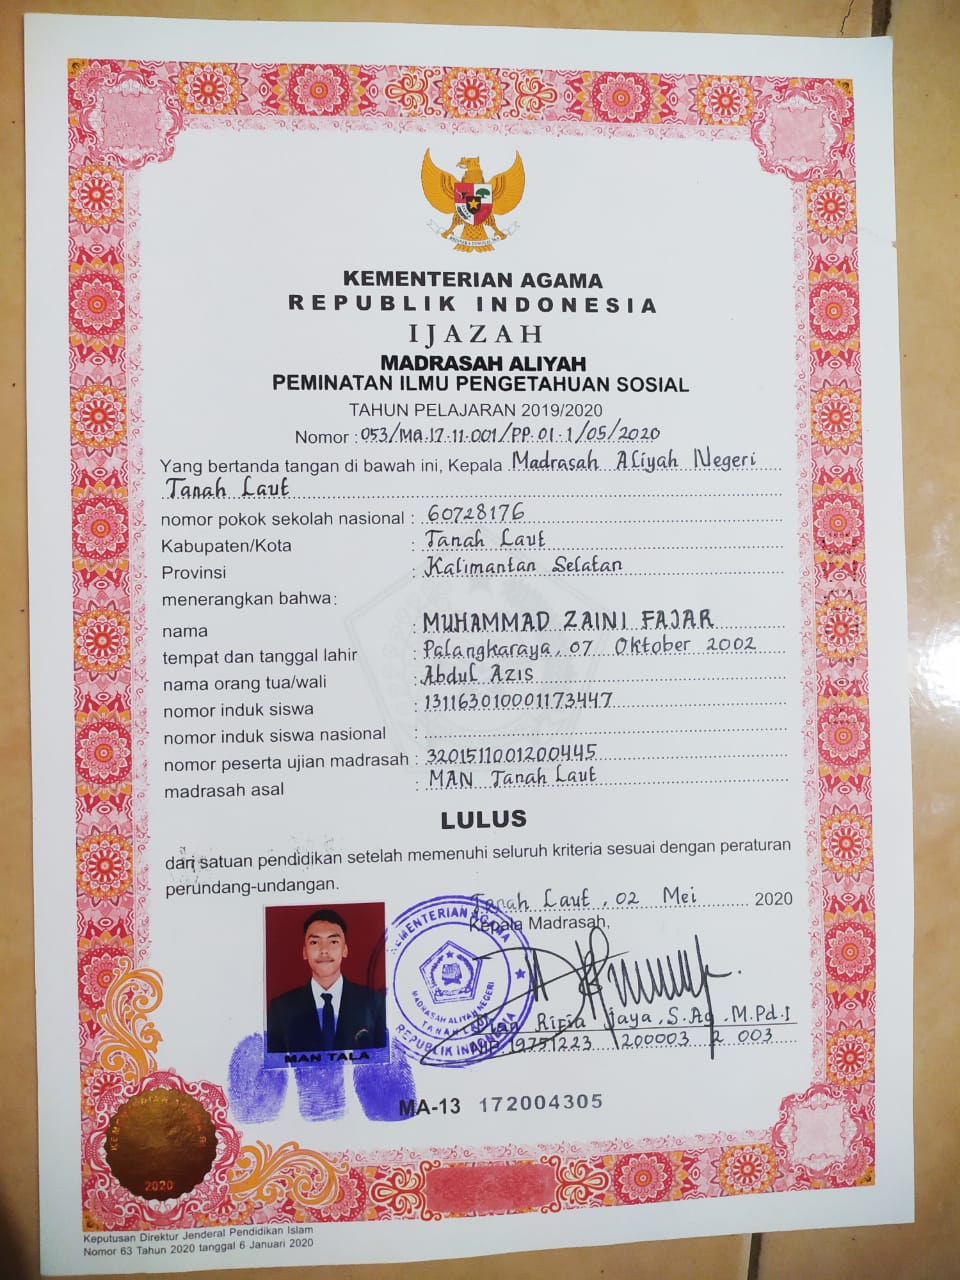 KEMENTERIAN AGAMA
REPUBLIK INDONESIA
IJAZAH
MADRASAH ALIYAH
PEMINATAN ILMU PENGETAHUAN SOSIAL
TAHUN PELAJARAN 2019/2020
Nomor : 053/MA.17.11.001/PP.01.1/05/2020
Yang bertanda tangan di bawah ini, Kepala Madrasah Aliyah Negeri
Tanah Laut
nomor pokok sekolah nasional : 60728176
Kabupaten/Kota : Tanah Laut
Provinsi : Kalimantan Selatan
menerangkan bahwa:
nama : MUHAMMAD ZAINI FAJAR
tempat dan tanggal lahir : Palangkaraya, 07 Oktober 2002
nama orang tua/wali : Abdul Azis
nomor induk siswa : 131163010001173447
nomor induk siswa nasional :
nomor peserta ujian madrasah : 3201511001200445
madrasah asal : MAN Tanah Laut
LULUS
dari satuan pendidikan setelah memenuhi seluruh kriteria sesuai dengan peraturan
perundang-undangan.
Tanah Laut, 02 Mei 2020
Kepala Madrasah,
KEMENTERIAN AGAMA
MADRASAH ALIYAH NEGERI
TANAH LAUT
REPUBLIK INDONESIA
Rifia Jaya, S.Ag.M.Pd.I
NIP 19751223 200003 2 003
MAN TALA
MA-13 172004305
2020
Keputusan Direktur Jenderal Pendidikan Islam
Nomor 63 Tahun 2020 tanggal 6 Januari 2020